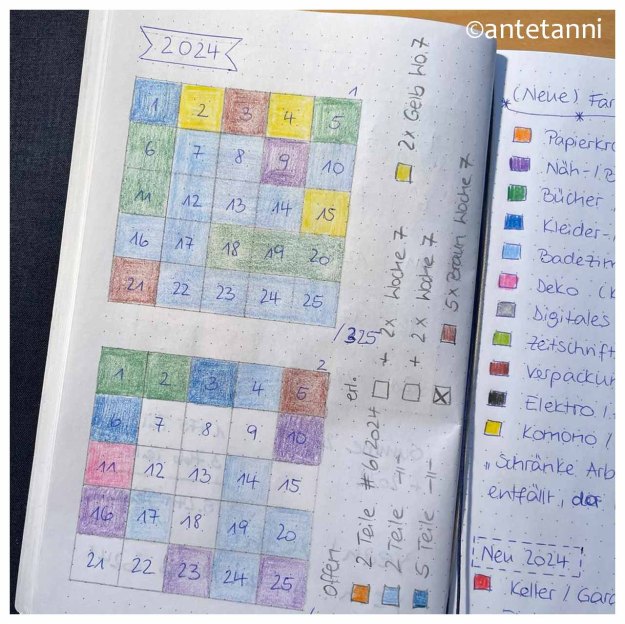 ©antetanni
2024
1
1 2 3 4 5
6 7 8 9 10
11 12 13 14 15
16 17 18 19 20
21 22 23 24 25
/325
2
1 2 3 4 5
6 7 8 9 10
11 12 13 14 15
16 17 18 19 20
21 22 23 24 25
offen
2 Teile #6/2024 erl.
+ 2x Woche 7
2x Gelb Wo.7
2 Teile -//-
+ 2x Woche 7
5 Teile -//-
5x Braun Woche 7
(Neue) Far
Papierkr
Näh-/B
Bücher
Kleider-
Badezim
Deko (k
Digitales
Zeitschrift
Verpackun
Elektro /
Komono /
"Schränke Arb
entfällt, da
Neu 2024
Keller / Gara